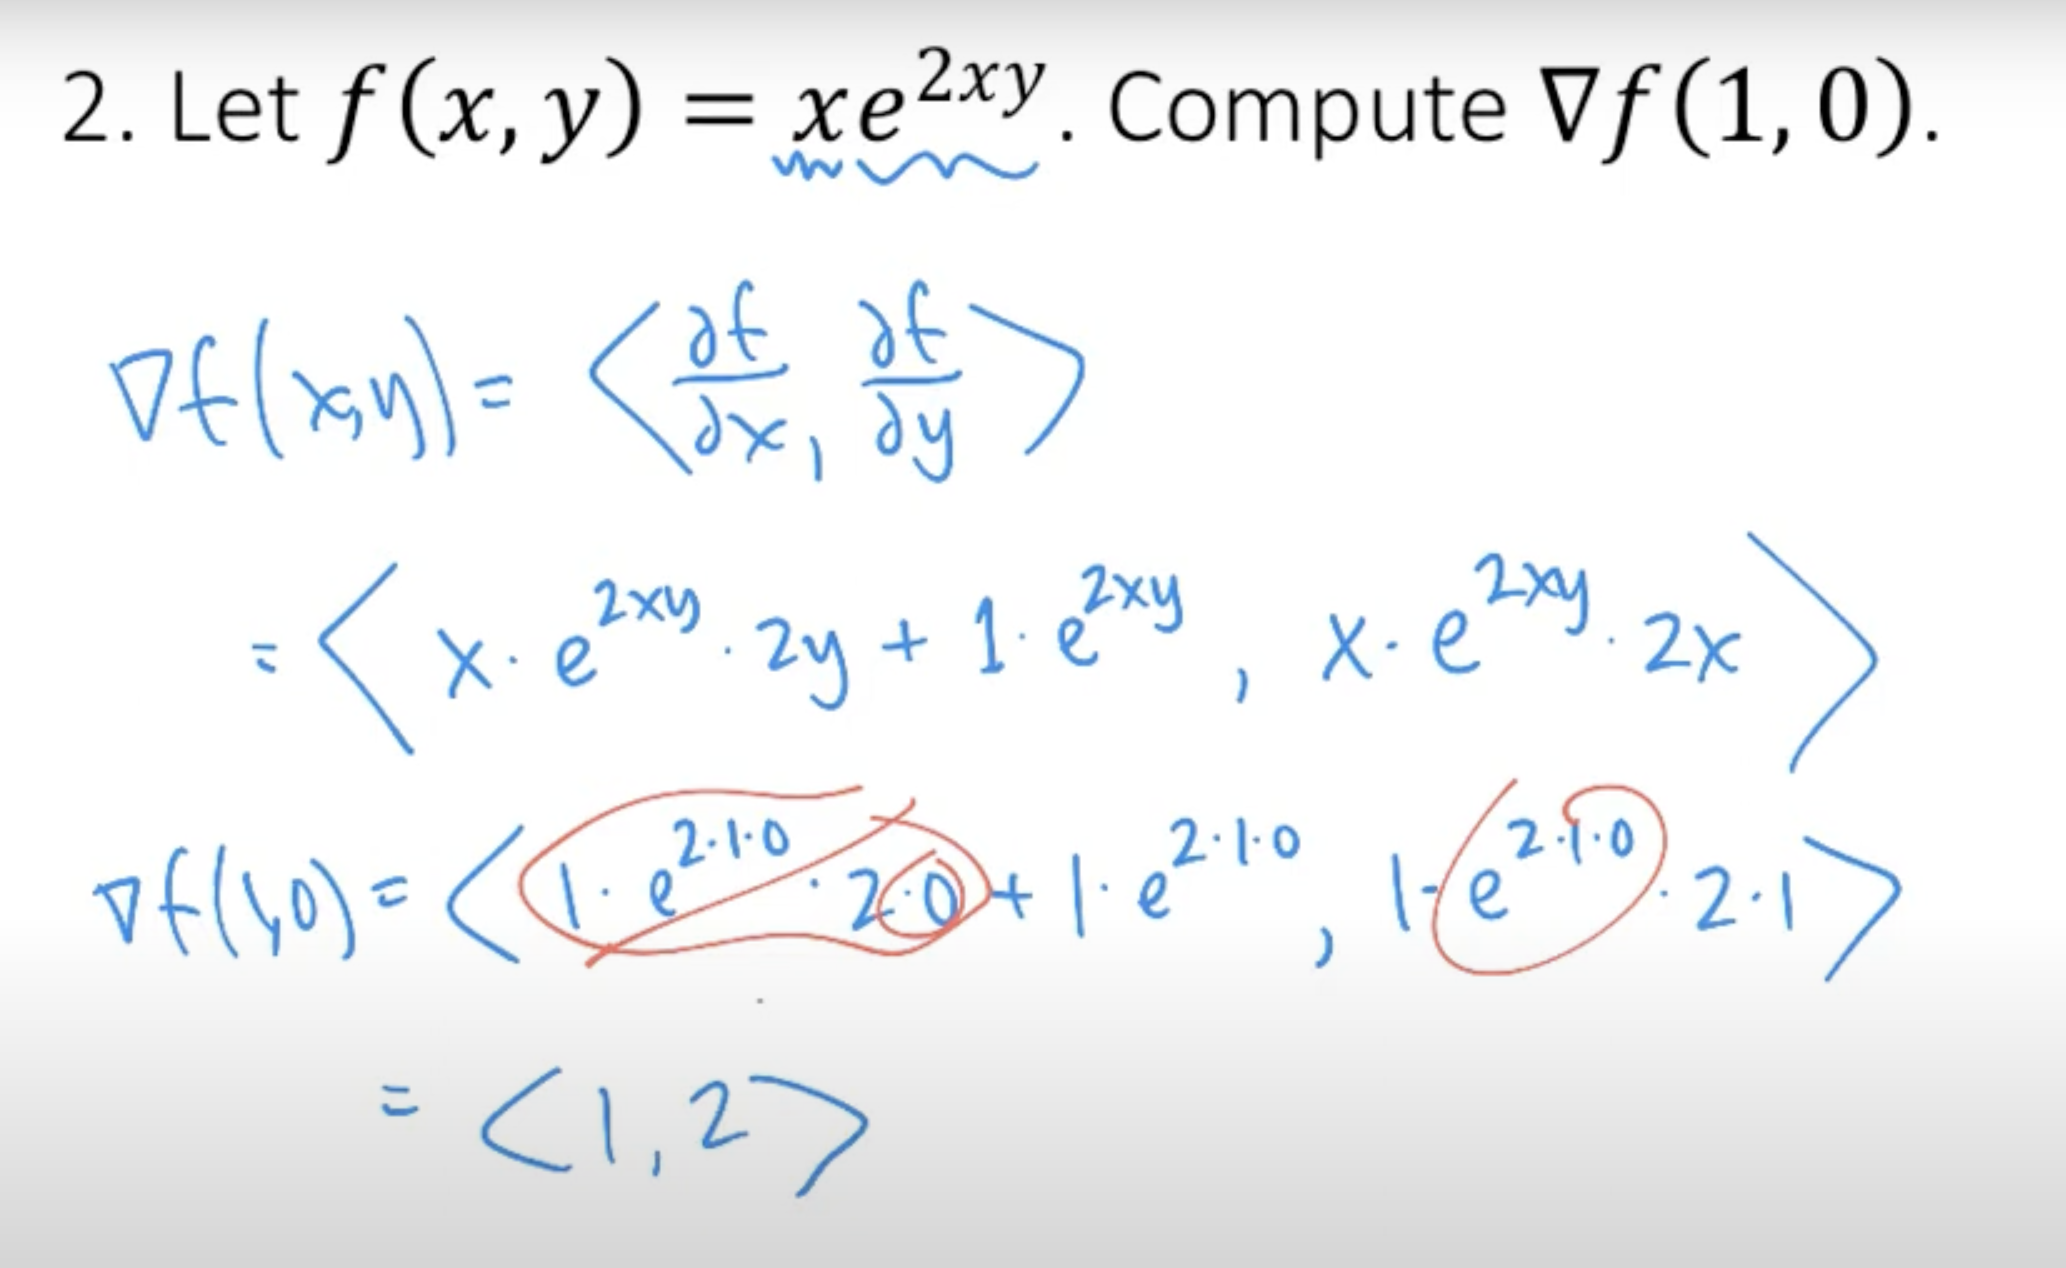 2. Let f(x, y) = xe^{2xy}. Compute ∇f(1, 0).
∇f(x,y) = ⟨∂f/∂x, ∂f/∂y⟩
= ⟨x · e^{2xy} · 2y + 1 · e^{2xy}, x · e^{2xy} · 2x⟩
∇f(1,0) = ⟨1 · e^{2·1·0} · 2·0 + 1 · e^{2·1·0}, 1 · e^{2·1·0} · 2·1⟩
= ⟨1, 2⟩